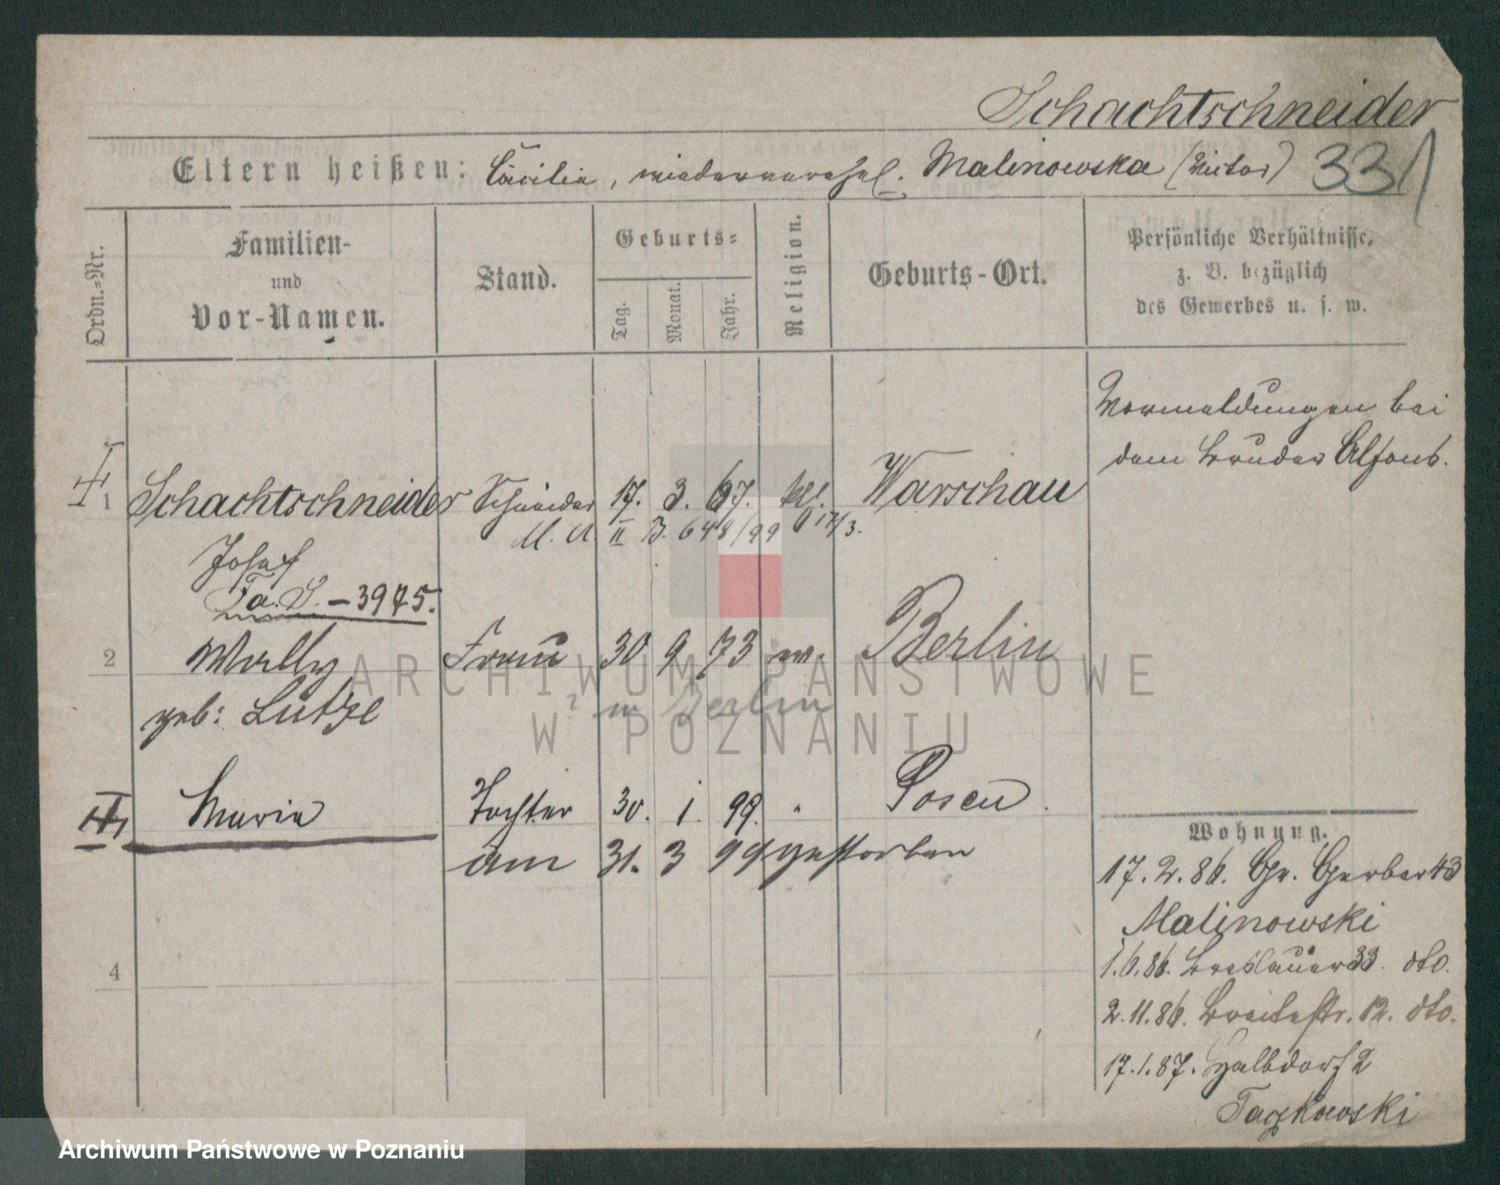 Schachtschneider
Eltern heißen: Cäcilia, wiederverehel. Malinowska (Victor) 331
Ordn.-Nr.
Familien-
und
Vor-Namen.
Stand.
Geburts-
Tag.
Monat.
Jahr.
Religion.
Geburts-Ort.
Persönliche Verhältnisse,
z. B. bezüglich
des Gewerbes u. s. w.
Vormeldungen bei
dem Bruder Alfons.
1 Schachtschneider Schneider 17. 3. 67. kth. Warschau
M. A II B. 648/99 17/3.
Josef
3945.
2 Wally Frau 30 9 73 ev. Berlin
geb: Lutze
? in Berlin
Maria Tochter 30. 1. 99. " Posen.
am 31. 3 99 gestorben
4
Wohnung.
17.2.86. Gr. Gerber 43
Malinowski
1.6.86. Breslauer 33. dto.
2.11.86. Breitestr. 12. dto.
17.1.87. Halbdorf 2
Taczkowski
ARCHIWUM PAŃSTWOWE
W POZNANIU
Archiwum Państwowe w Poznaniu